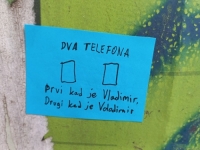 DVA TELEFONA
Prvi kad je Vladimir,
Drugi kad je Volodimir